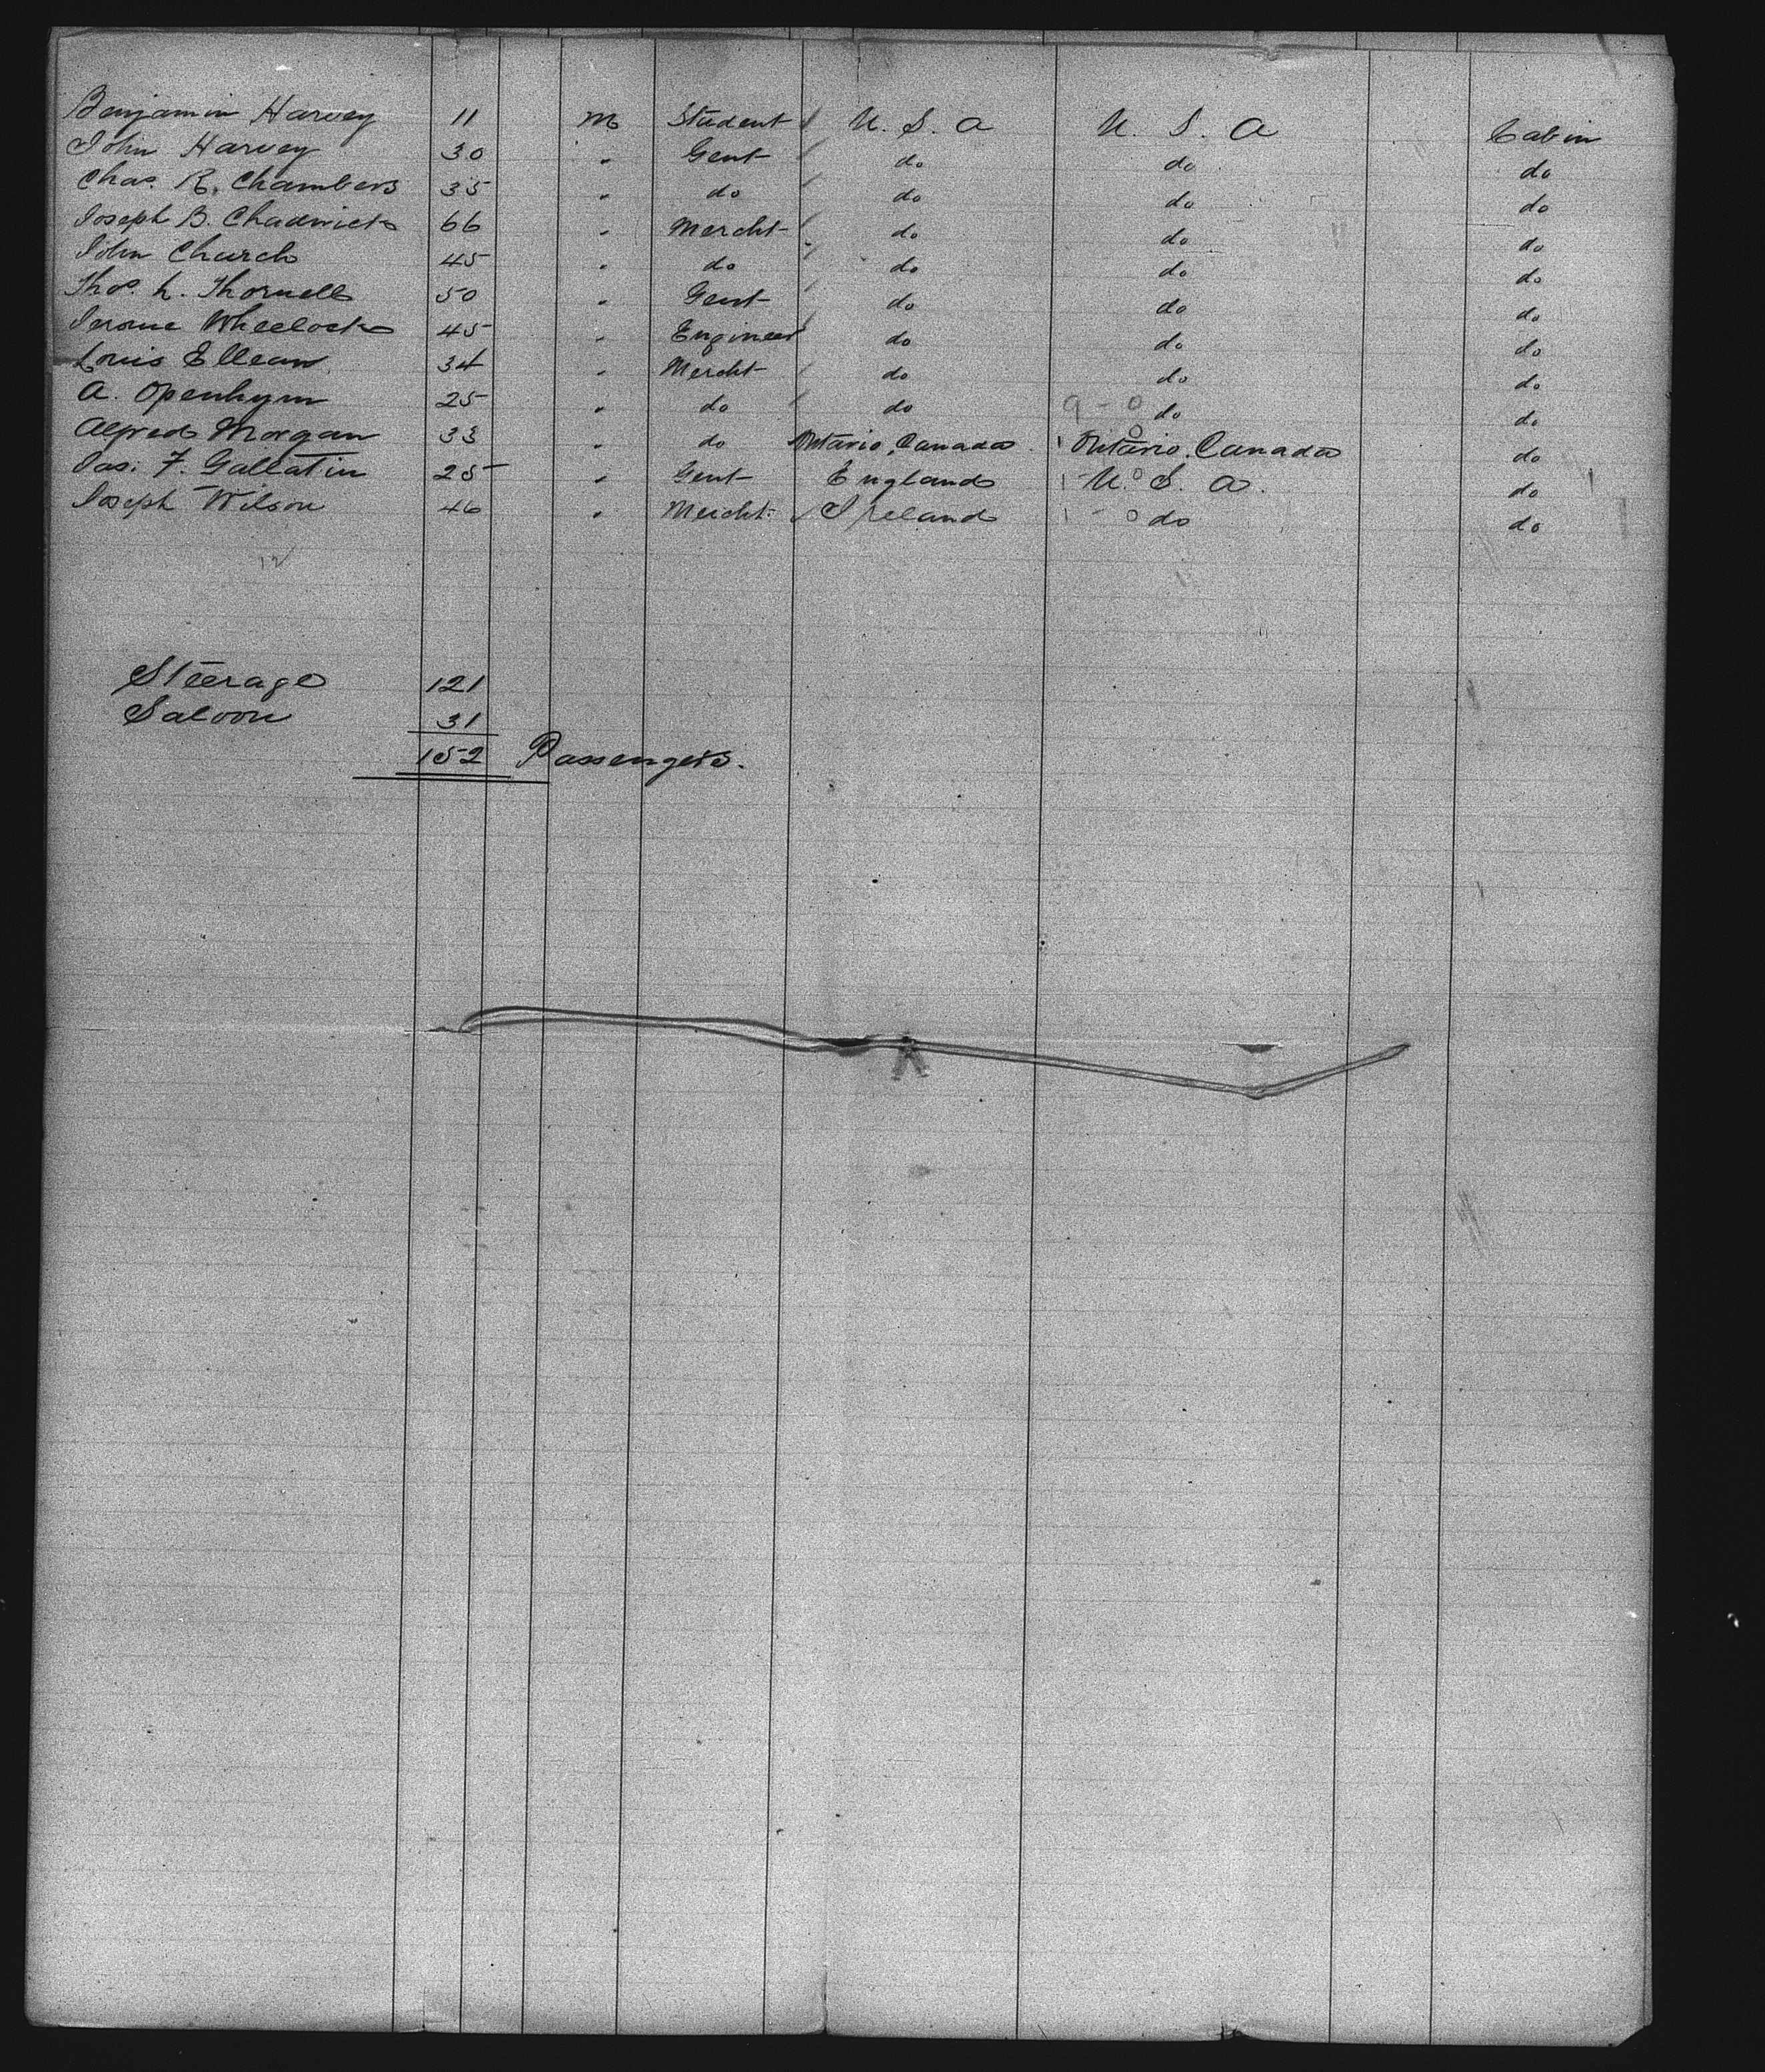 Benjamin Harvey 11 M Student U. S. A U. S. A Cabin
John Harvey 30 " Gent do do do
Chas. R. Chambers 35 " do do do do
Joseph B. Chadwick 66 " Mercht do do do
John Church 45 " do do do do
Thos. L. Thornell 50 " Gent do do do
Jerome Wheelock 45 " Engineer do do do
Louis Ellean 34 " Mercht do do do
A. Openhym 25 " do do 9 - 0 do do
Alfred Morgan 33 " do Ontario, Canada Ontario, Canada do
Jas: F. Gallatin 25 " Gent England 1 - 0 U. S. A. do
Joseph Wilson 46 " Mercht: Ireland 1 - 0 do do
12
Steerage 121
Saloon 31
152 Passengers.